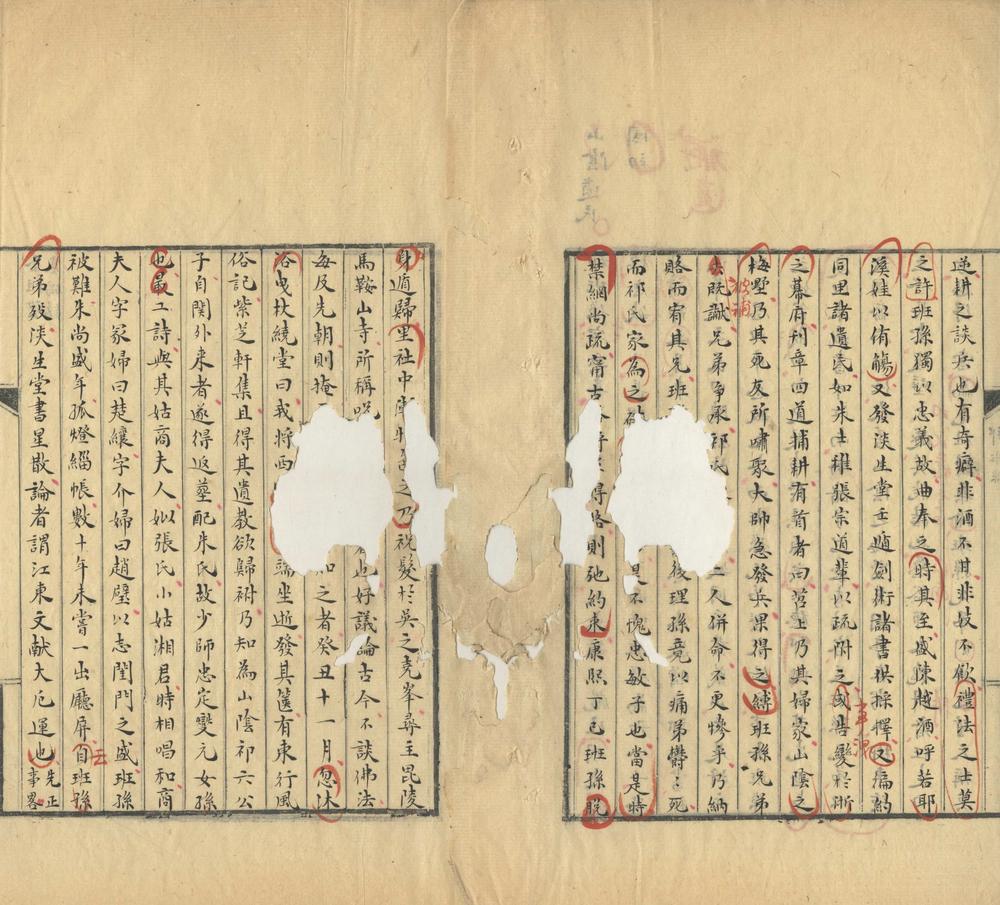 逐耕之談兵也有奇癖非酒不甜非妓不飲禮法之士莫
之許班孫獨以忠義故曲奉之時其至盛陳越酒呼若耶
溪娃以侑觴又發淡生堂壬遁劍術諸書供採擇又徧約
同里諸遺耆如朱士稚張宗道輩以疏附之國告變於浙
之幕府刊章四道捕耕有首者曰苕上乃其婦家山陰之
梅墅乃其死友所嘯聚大帥急發兵果得之縛班孫兄弟
去既讞兄弟爭承祁氏二人併命不更慘乎乃納
賂而宥其兄班後理孫竟以痛弟鬱鬱死
而祁氏家為之是不愧忠敏子也當是時
禁網尚疏甯古得賂則弛約束康熙丁巳班孫脫
身遁歸里社中之乃祝髮於吳之堯峯尋主昆陵
馬鞍山寺所稱也好議論古今不談佛法
每及先朝則掩知之者癸丑十一月忽沐
浴曳杖繞堂曰我將西端坐逝發其篋有東行風
俗記紫芝軒集且得其遺教欲歸祔乃知為山陰祁六公
子自關外來者遂得返塟配朱氏故少師忠定燮元女孫
也最工詩與其姑商夫人姒張氏小姑湘君時相唱和商
夫人字冢婦曰楚纕字介婦曰趙璧以志閨門之盛班孫
被難朱尚盛年孤燈緇帳數十年未嘗一出廳屏自班孫
兄弟歿淡生堂書星散論者謂江東文献大厄運也
先正
事畧